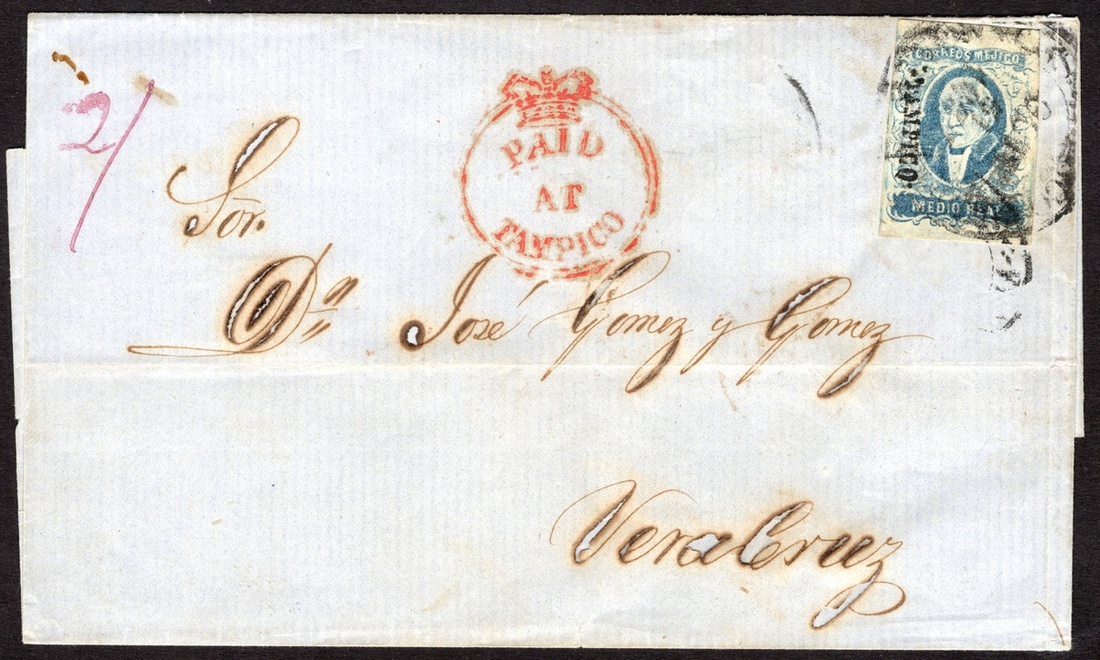 2/
PAID
AT
TAMPICO
CORREOS MEJICO
TAMPICO
MEDIO REAL
Sōr.
Dn José Gomez y Gomez
VeraCruz